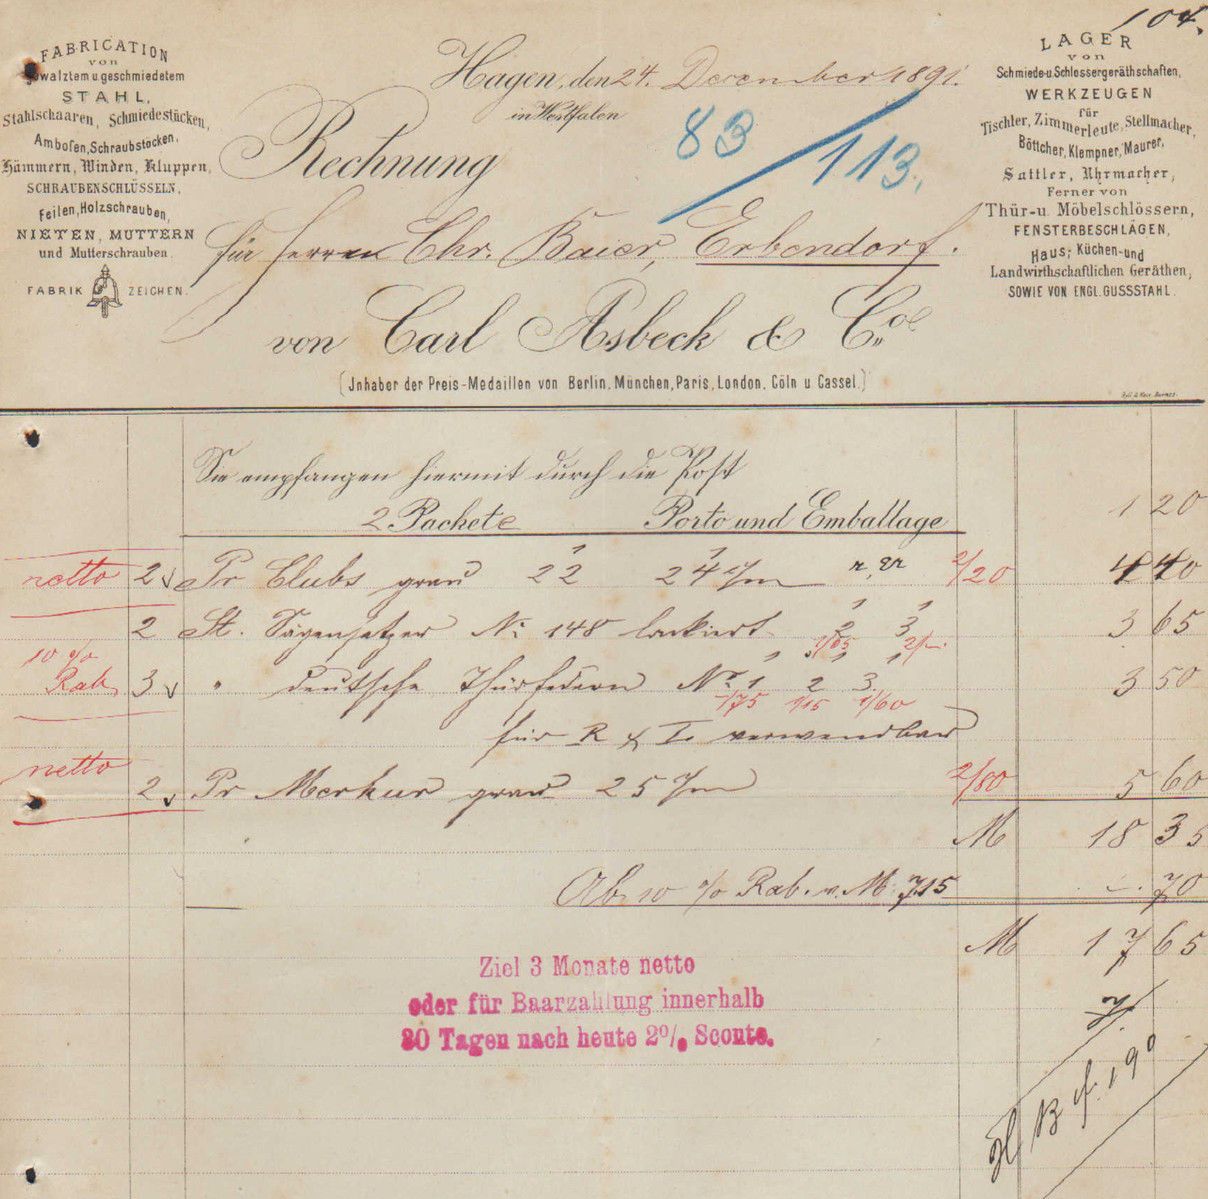 104.
FABRICATION
von
gewalztem u. geschmiedetem
STAHL,
Stahlschaaren, Schmiedestücken,
Ambosen, Schraubstöcken,
Hämmern, Winden, Kluppen,
SCHRAUBENSCHLÜSSELN,
Feilen, Holzschrauben,
NIETEN, MUTTERN
und Mutterschrauben.
FABRIK ZEICHEN.
LAGER
von
Schmiede-u. Schlossergeräthschaften,
WERKZEUGEN
für
Tischler, Zimmerleute, Stellmacher,
Böttcher, Klempner, Maurer,
Sattler, Uhrmacher,
Ferner von
Thür-u. Möbelschlössern,
FENSTERBESCHLÄGEN,
Haus-, Küchen-und
Landwirthschaftlichen Geräthen,
SOWIE VON ENGL. GUSSSTAHL.
Hagen, den 24. December 1891.
in Westfalen
83/113.
Rechnung
für Herren Chr. Baier, Erbendorf.
von Carl Asbeck & Co.
(Jnhaber der Preis-Medaillen von Berlin, München, Paris, London, Cöln u Cassel.)
Sie empfangen hiermit durch die Post
2 Packete Porto und Emballage 1 20
netto 2 Pr Clubs grau 22 24 c/m r, er 2/20 4 40
2 St. Sägensetzer No 148 lackiert 2 3 3 65
1/65 2/-
10 % Rab. 3 " deutsche Thürfedern No 1 2 3 3 50
-/75 1/15 1/60
für R & L verwendbar
netto 2 Pr Merkur grau 25 c/m 2/80 5 60
M 18 35
Ab 10 % Rab. v. M. 7.15 -. 70
M 17 65
Ziel 3 Monate netto
oder für Baarzahlung innerhalb
30 Tagen nach heute 2% Sconto.